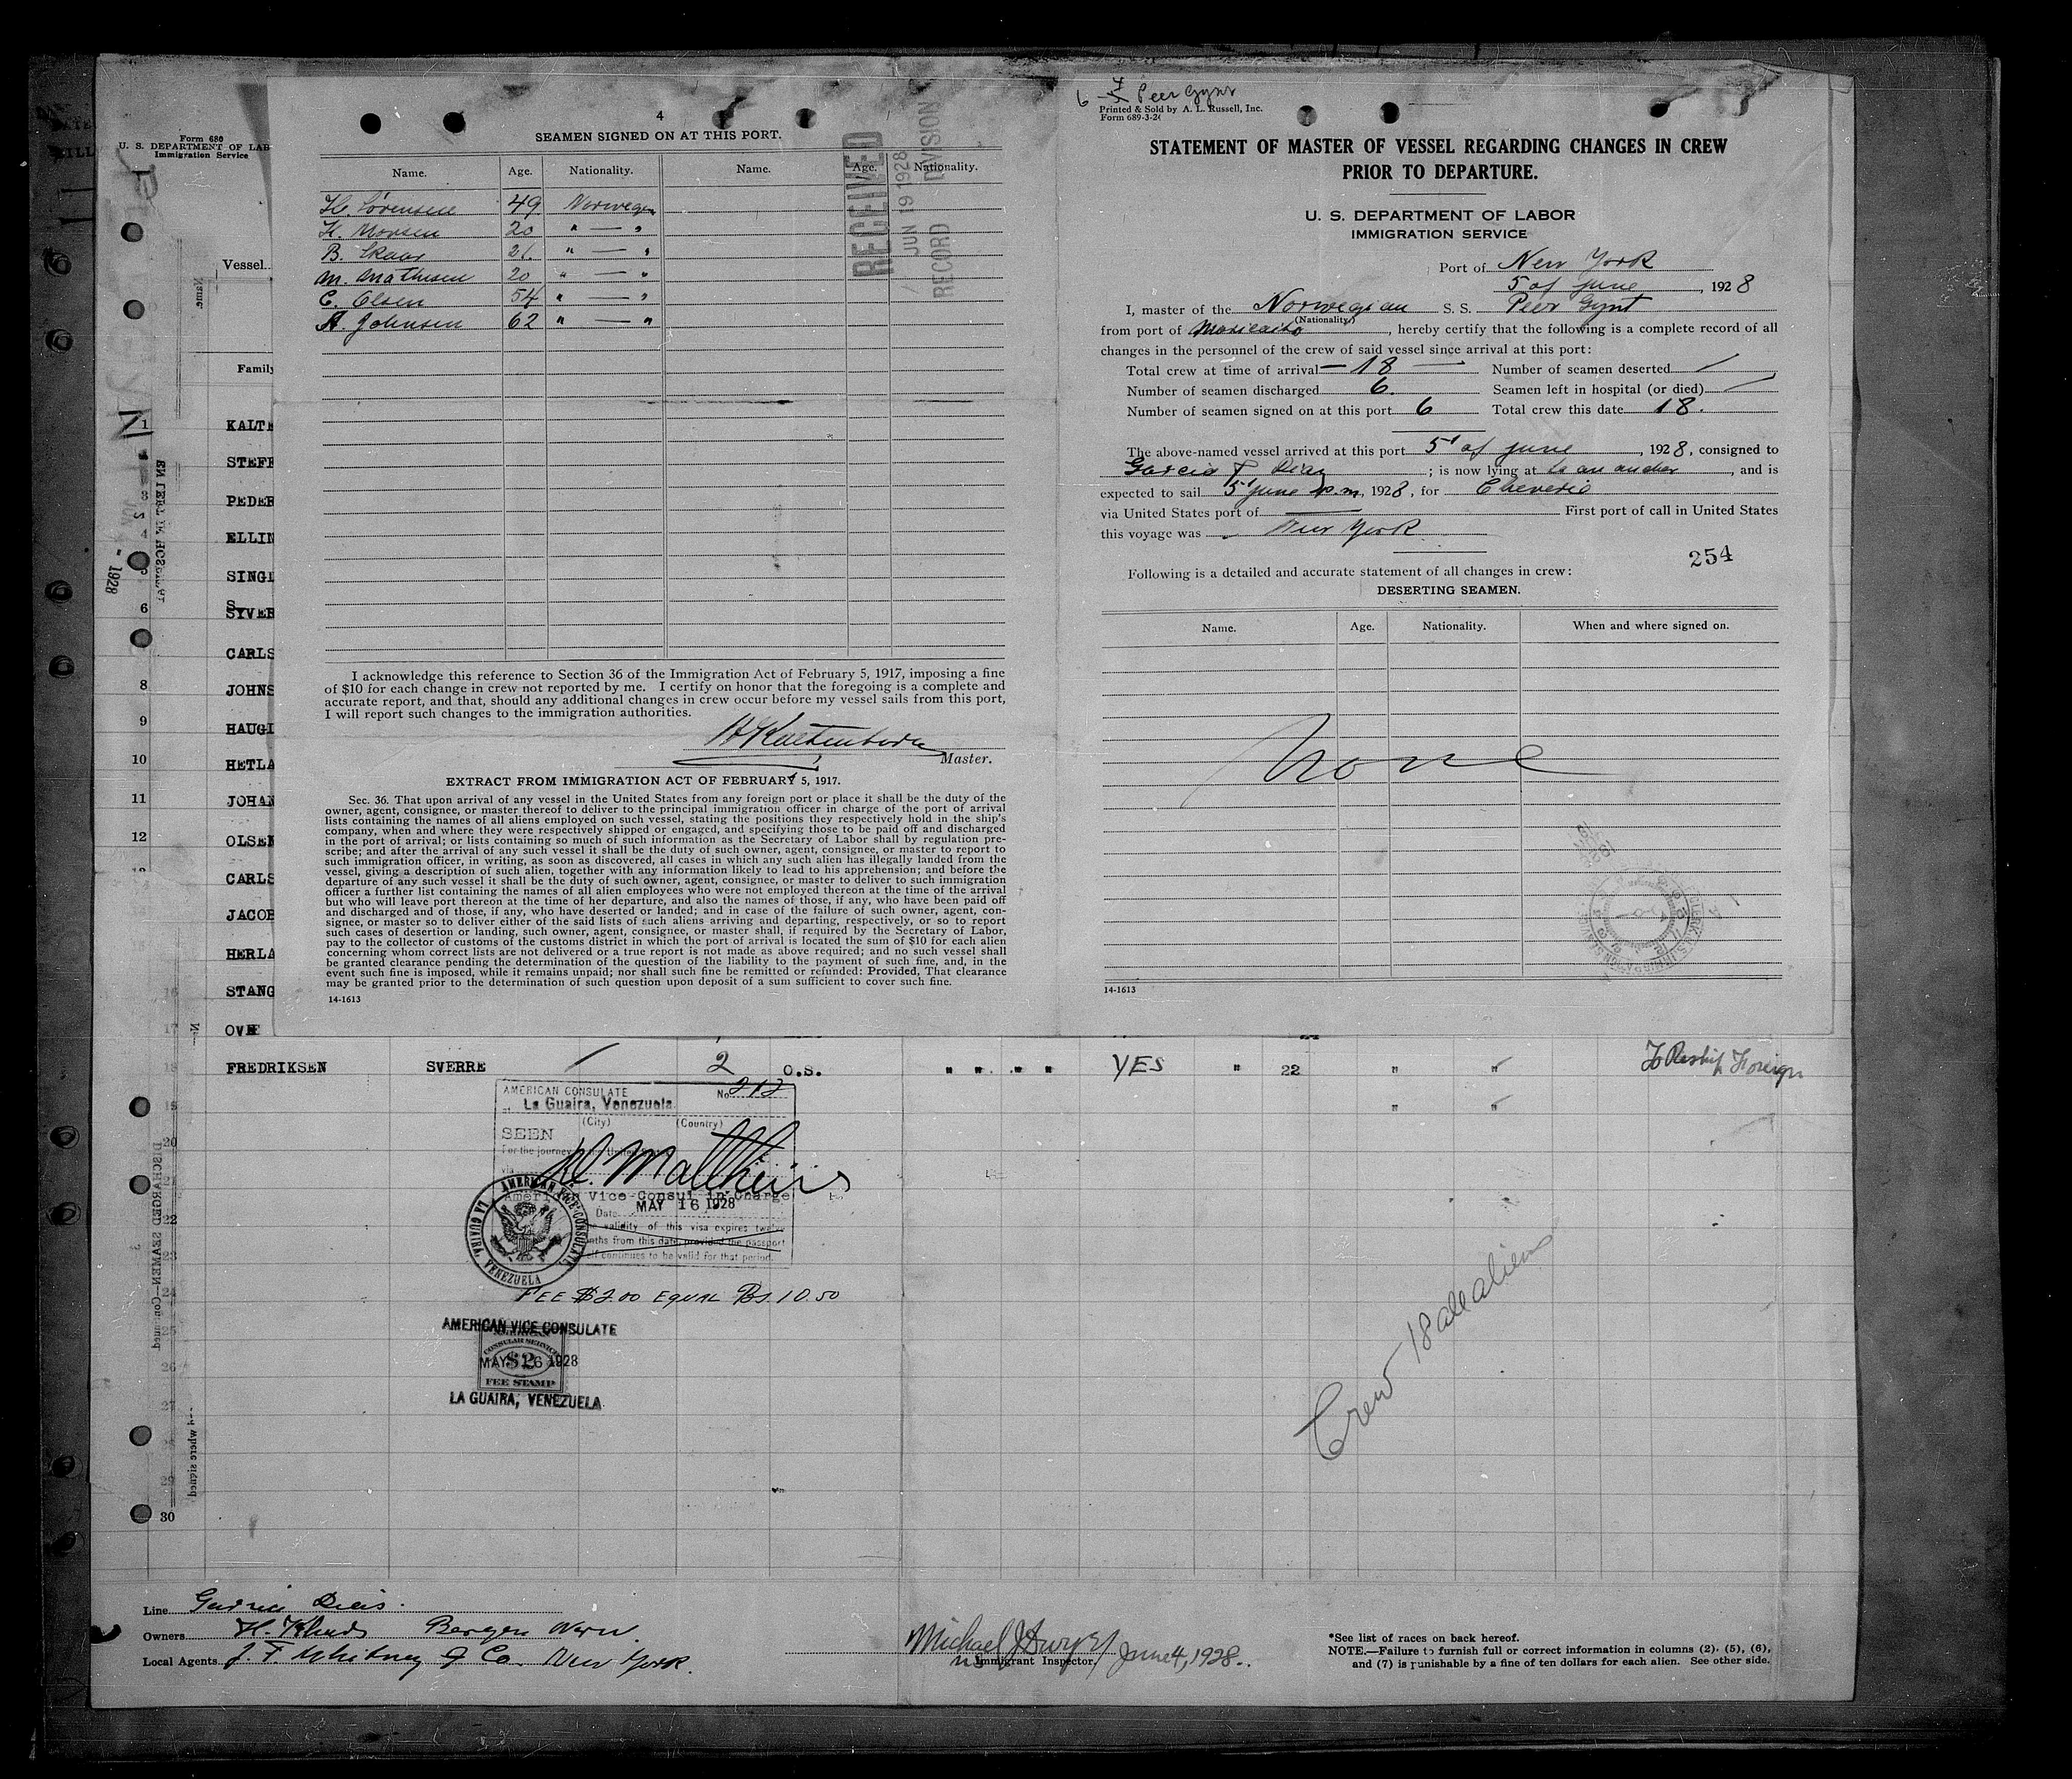 Form 680
U. S. DEPARTMENT OF LAB
Immigration Service
Vessel
Family
1 KALTE
STEFF
3 PEDER
4 ELLIN
SINGL
6 SYVER
CARLS
8 JOHNS
9 HAUGL
10 HETLA
11 JOHAN
12 OLSEN
CARLS
JACOB
HERLA
16 STANG
17 OVE
4
SEAMEN SIGNED ON AT THIS PORT.
Name. Age. Nationality. Name. Age. Nationality.
H. Sørensen 49 Norwegen
K. Monsen 20 " — "
B. Skaar 21. " — "
M. Mathisen 20 " — "
C. Olsen 54 " — "
A. Johnsen 62 " — "
RECEIVED
JUN 19 1928
RECORD DIVISION
I acknowledge this reference to Section 36 of the Immigration Act of February 5, 1917, imposing a fine
of $10 for each change in crew not reported by me. I certify on honor that the foregoing is a complete and
accurate report, and that, should any additional changes in crew occur before my vessel sails from this port,
I will report such changes to the immigration authorities.
Kaltenborn
Master.
EXTRACT FROM IMMIGRATION ACT OF FEBRUARY 5, 1917.
Sec. 36. That upon arrival of any vessel in the United States from any foreign port or place it shall be the duty of the
owner, agent, consignee, or master thereof to deliver to the principal immigration officer in charge of the port of arrival
lists containing the names of all aliens employed on such vessel, stating the positions they respectively hold in the ship's
company, when and where they were respectively shipped or engaged, and specifying those to be paid off and discharged
in the port of arrival; or lists containing so much of such information as the Secretary of Labor shall by regulation pre-
scribe; and after the arrival of any such vessel it shall be the duty of such owner, agent, consignee, or master to report to
such immigration officer, in writing, as soon as discovered, all cases in which any such alien has illegally landed from the
vessel, giving a description of such alien, together with any information likely to lead to his apprehension; and before the
departure of any such vessel it shall be the duty of such owner, agent, consignee, or master to deliver to such immigration
officer a further list containing the names of all alien employees who were not employed thereon at the time of the arrival
but who will leave port thereon at the time of her departure, and also the names of those, if any, who have been paid off
and discharged and of those, if any, who have deserted or landed; and in case of the failure of such owner, agent, con-
signee, or master so to deliver either of the said lists of such aliens arriving and departing, respectively, or so to report
such cases of desertion or landing, such owner, agent, consignee, or master shall, if required by the Secretary of Labor,
pay to the collector of customs of the customs district in which the port of arrival is located the sum of $10 for each alien
concerning whom correct lists are not delivered or a true report is not made as above required; and no such vessel shall
be granted clearance pending the determination of the question of the liability to the payment of such fine, and, in the
event such fine is imposed, while it remains unpaid; nor shall such fine be remitted or refunded: Provided, That clearance
may be granted prior to the determination of such question upon deposit of a sum sufficient to cover such fine.
14-1613
Peer Gynt
Printed & Sold by A. L. Russell, Inc.
Form 689-3-26
STATEMENT OF MASTER OF VESSEL REGARDING CHANGES IN CREW
PRIOR TO DEPARTURE.
U. S. DEPARTMENT OF LABOR
IMMIGRATION SERVICE
Port of New York
5 of june, 1928
I, master of the Norwegian S. S. Peer Gynt
(Nationality)
from port of Maricaibo, hereby certify that the following is a complete record of all
changes in the personnel of the crew of said vessel since arrival at this port:
Total crew at time of arrival — 18 — Number of seamen deserted
Number of seamen discharged 6. Seamen left in hospital (or died)
Number of seamen signed on at this port 6 Total crew this date 18.
The above-named vessel arrived at this port 5' of june, 1928, consigned to
Garcia & Diaz; is now lying at to an ancher, and is
expected to sail 5' june p.m, 1928, for Cheverie
via United States port of — First port of call in United States
this voyage was New York
254
Following is a detailed and accurate statement of all changes in crew:
DESERTING SEAMEN.
Name. Age. Nationality. When and where signed on.
None
14-1613
18 FREDRIKSEN SVERRE 2 O.S. " " " " YES " 22 " " To Reship Foreign
" "
AMERICAN CONSULATE No. 212
La Guaira, Venezuela
(City) (Country)
SEEN
For the journey to the United States
via
Matthews
American Vice Consul in Charge
Date MAY 16 1928
The validity of this visa expires twelve
months from this date, provided the passport
itself continues to be valid for that period.
AMERICAN VICE CONSULATE
LA GUAIRA, VENEZUELA
FEE $2.00 EQUAL Bs. 10.50
AMERICAN VICE CONSULATE
CONSULAR SERVICE
$2
MAY 16 1928
FEE STAMP
LA GUAIRA, VENEZUELA
Crew 18 all aliens
20
22
26
30
Line
Owners Bergen Norw.
Local Agents J. F. Whitney & Co. New York.
Michael J Dwyer June 4, 1928.
Immigrant Inspector.
*See list of races on back hereof.
NOTE.—Failure to furnish full or correct information in columns (2), (5), (6),
and (7) is punishable by a fine of ten dollars for each alien. See other side.